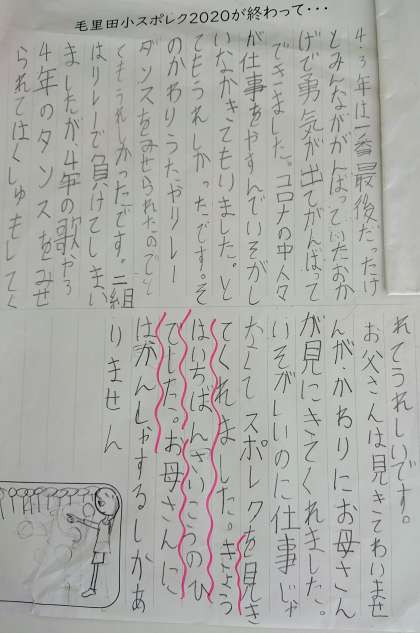 毛里田小スポレク2020が終わって・・・
4・3年は一番最後だったけ
とみんなががんばっていたおか
げで勇気が出てがんばって
できました。コロナの中人々
が仕事をやすんでいそがし
いなかきてもいました。と
てもうれしかったです。そ
のかわりうたやリレー
ダンスをみせられたのでと
くもうれしかったです。二組
はリレーで負けてしまい
ましたが、4年の歌やら
4年のダンスをみせ
られてはくしゅもしてく
れてうれしいです。
お父さんは見きてわいませ
んが・かわりにお母さん
が見にきてくれました。
いそがしいのに仕事
たくてスポレクを見き
てくれました。きょう
はいちばんさいこうのひ
でした。お母さんに
はかんしゃするしかあ
りません